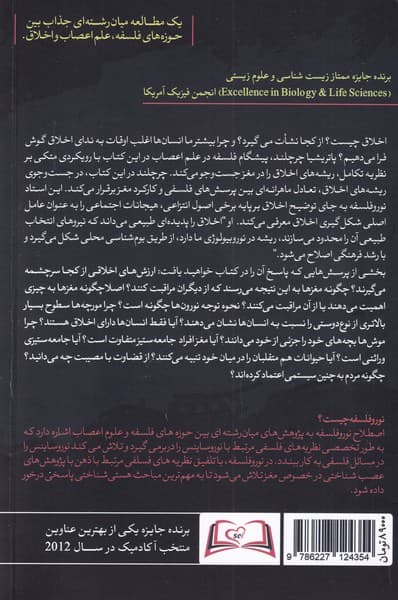 یک مطالعه میان رشته‌ای جذاب بین
حوزه‌های فلسفه، علم اعصاب و اخلاق.
برنده جایزه ممتاز زیست شناسی و علوم زیستی
(Excellence in Biology & Life Sciences) انجمن فیزیک آمریکا
اخلاق چیست؟ از کجا نشأت می‌گیرد؟ و چرا بیشتر ما انسان‌ها اغلب اوقات به ندای اخلاق گوش
فرا می‌دهیم؟ پاتریشیا چرچلند، پیشگام فلسفه در علم اعصاب در این کتاب با رویکردی متکی بر
نظریه تکامل، ریشه‌های اخلاق را در مغز جست‌وجو می‌کند. چرچلند در این کتاب، در جست‌وجوی
ریشه‌های اخلاق، تعادل ماهرانه‌ای بین پرسش‌های فلسفی و کارکرد مغز برقرار می‌کند. این استاد
نوروفلسفه به جای توضیح اخلاق بر پایه برخی اصول انتزاعی، هیجانات اجتماعی را به عنوان عامل
اصلی شکل‌گیری اخلاق معرفی می‌کند. او "اخلاق را پدیده‌ای طبیعی می‌داند که نیروهای انتخاب
طبیعی آن را محدود می‌سازند، ریشه در نوروبیولوژی ما دارد، از طریق بوم‌شناسی محلی شکل می‌گیرد و
با رشد فرهنگی اصلاح می‌شود."
بخشی از پرسش‌هایی که پاسخ آن را در کتاب خواهید یافت: ارزش‌های اخلاقی از کجا سرچشمه
می‌گیرند؟ چگونه مغزها به این نتیجه می‌رسند که از دیگران مراقبت کنند؟ اصلا چگونه مغزها به چیزی
اهمیت می‌دهند یا از آن مراقبت می‌کنند؟ نحوه توجه نورون‌ها چگونه است؟ چرا مورچه‌ها سطوح بسیار
بالاتری از نوع‌دوستی را نسبت به انسان‌ها نشان می‌دهند؟ آیا فقط انسان‌ها دارای اخلاق هستند؟ چرا
موش‌ها بچه‌های خود را جزئی از خود می‌دانند؟ آیا مغز افراد جامعه‌ستیز متفاوت است؟ آیا جامعه‌ستیزی
وراثتی است؟ آیا حیوانات هم متقلبان را در میان خود تنبیه می‌کنند؟ از قضاوت با مصیبت چه می‌دانید؟
چگونه مردم به چنین سیستمی اعتماد کرده‌اند؟
نوروفلسفه چیست؟
اصطلاح نوروفلسفه به پژوهش‌های میان رشته‌ای بین حوزه های فلسفه و علوم اعصاب اشاره دارد که
به طور تخصصی نظریه‌های فلسفی مرتبط با نوروساینس را دربرمی گیرد و تلاش می کند نوروساینس را
در مسائل فلسفی به کار ببندد. در نوروفلسفه، با تلفیق نظریه های فلسفی مرتبط با ذهن با پژوهش‌های
عصب شناختی در خصوص مغز تلاش می‌شود تا به مهم‌ترین مباحث هستی شناختی پاسخی درخور
داده شود.
برنده جایزه یکی از بهترین عناوین
منتخب آکادمیک در سال 2012
۸۹۰۰۰ تومان
9 786227 124354